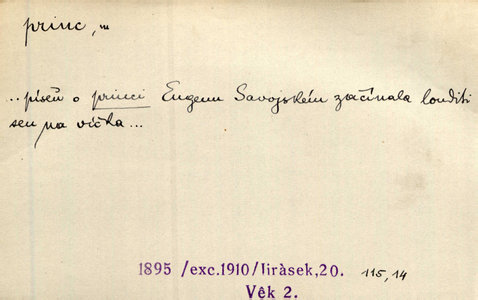 princ, m
..píseň o princi Eugenu Savojském začínala louditi
sen na víčka...
1895 /exc.1910/Jiràsek,20. 115,14
Vêk 2.